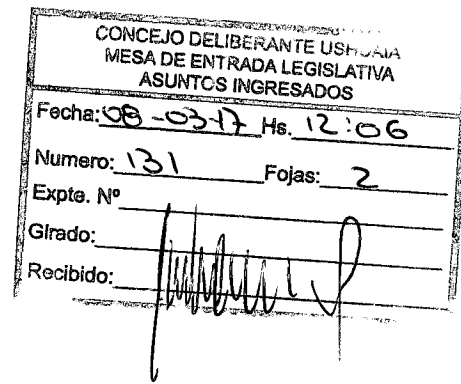 CONCEJO DELIBERANTE USHUAIA
MESA DE ENTRADA LEGISLATIVA
ASUNTOS INGRESADOS
Fecha: 08-03-17 Hs. 12:06
Numero: 131 Fojas: 2
Expte. Nº
Girado:
Recibido: